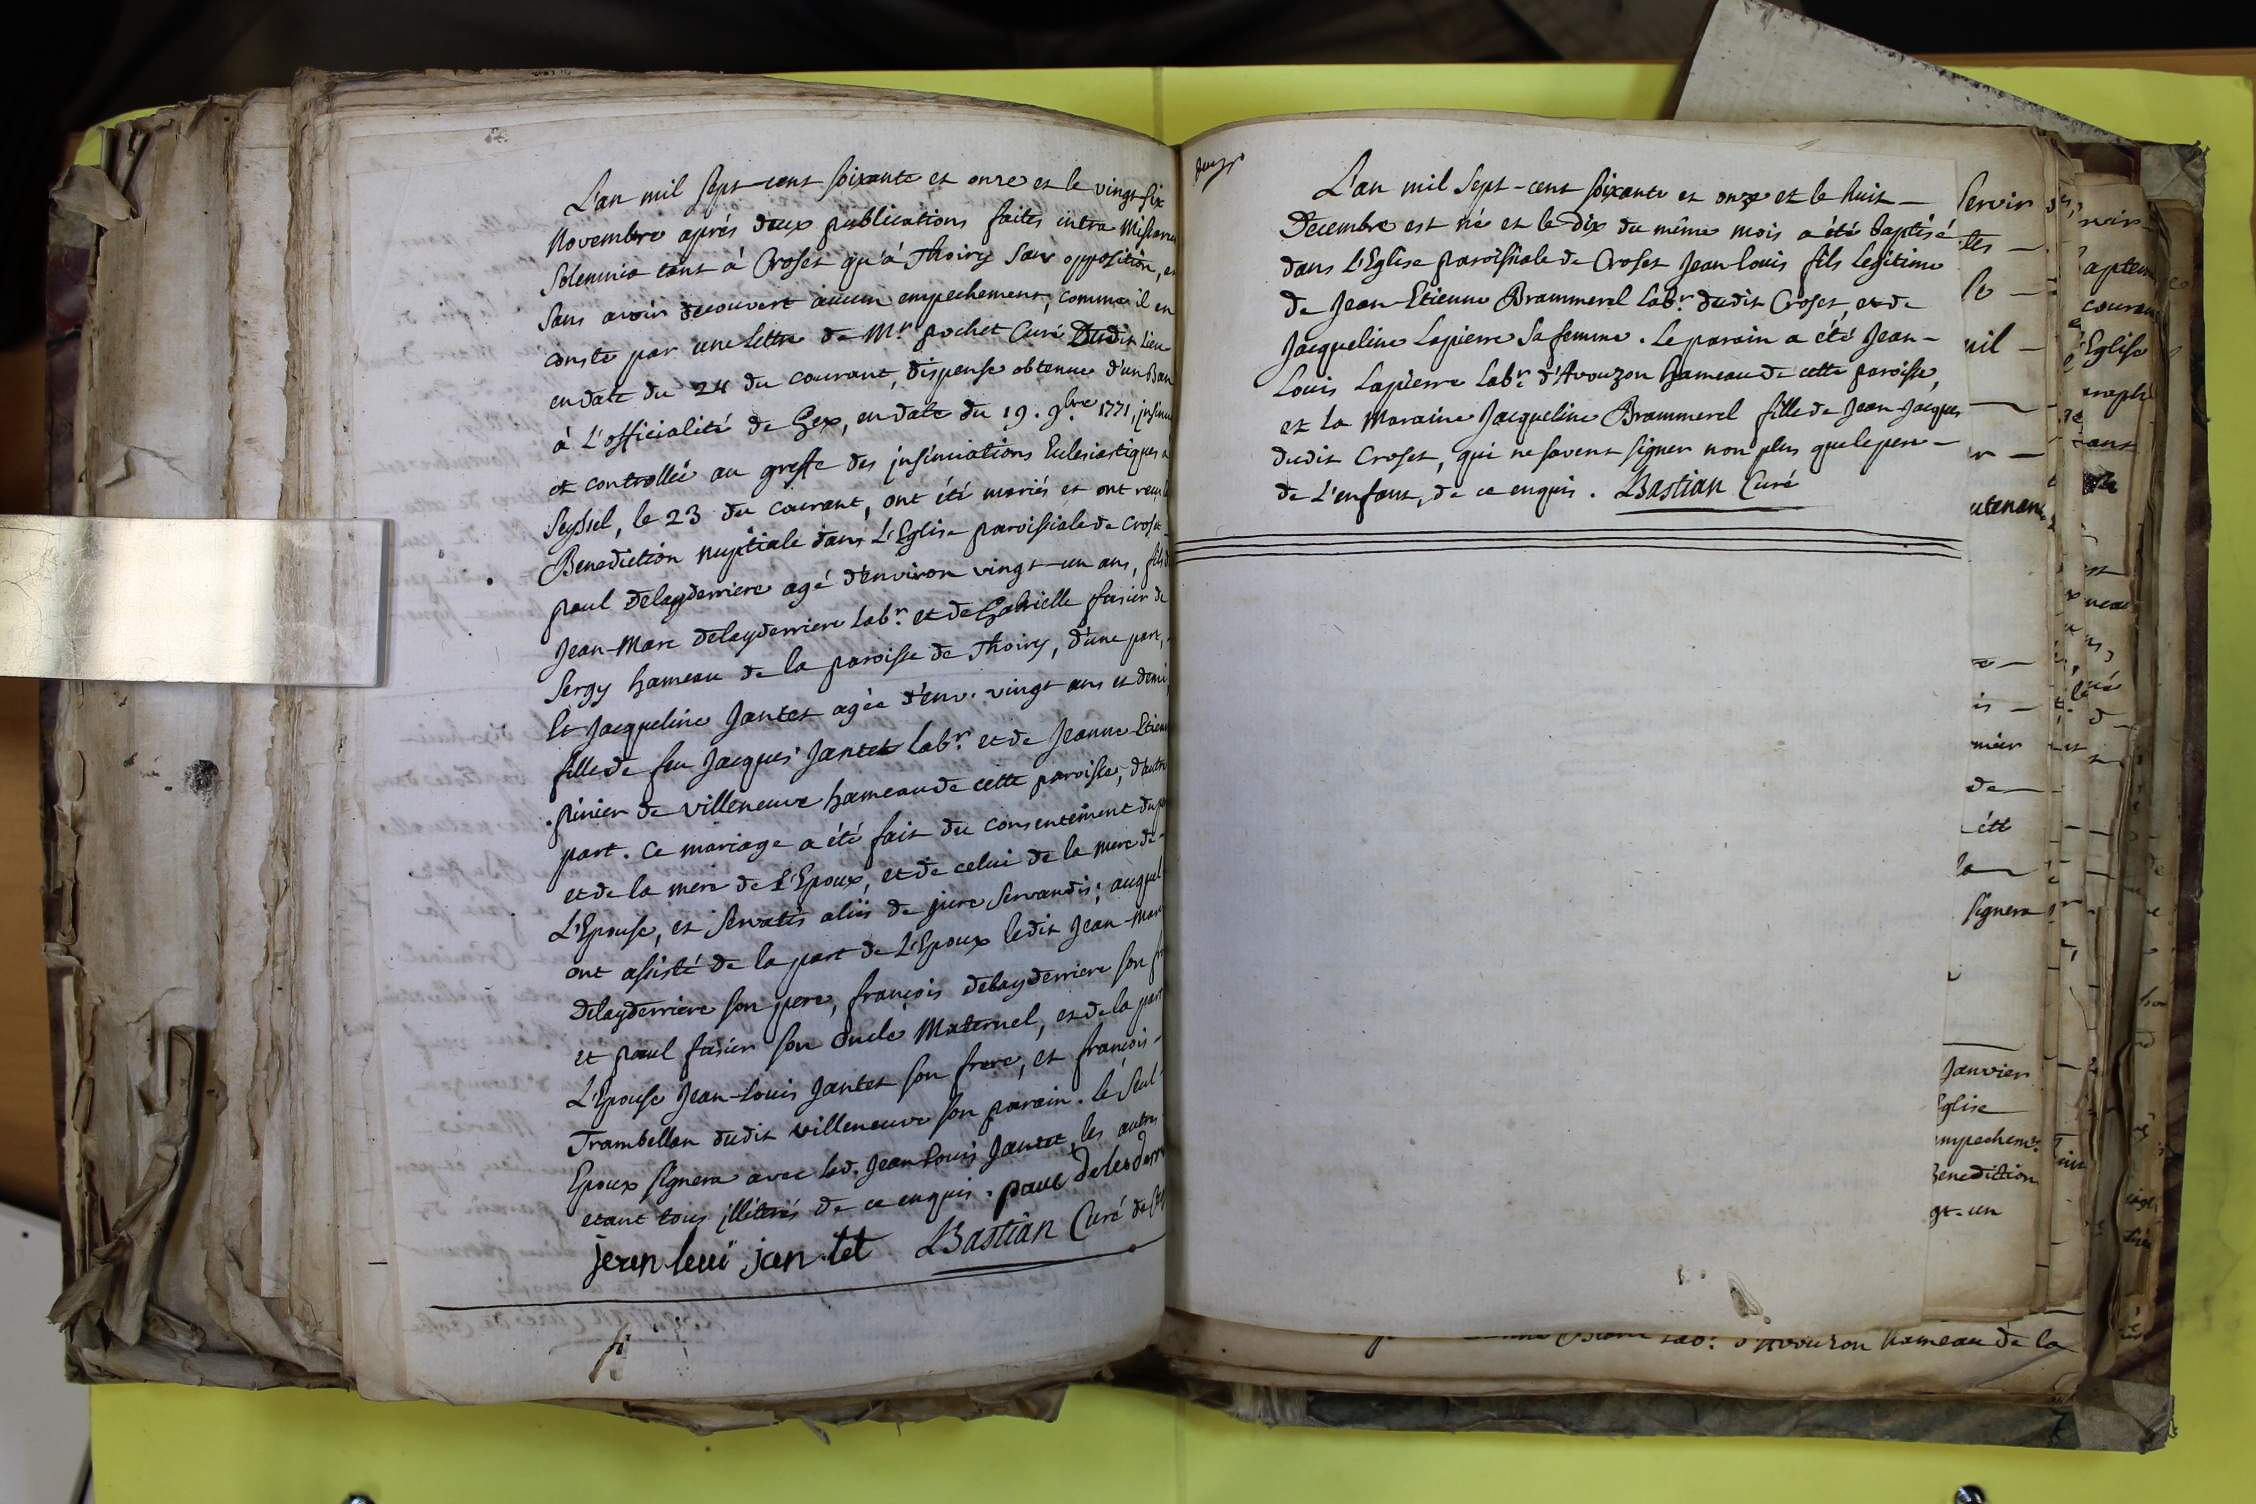 L'an mil sept-cent soixante et onze et le vingt-six
Novembre aprés deux publications faites intra Missarum
Solemnia tant à Croset qu'à Thoiry sans opposition, et
sans avoir decouvert aucun empechement, comme il en
conste par une lettre de Mr. pochet Curé Dudit lieu
en date du 24 du courant, dispense obtenue d'un Ban
à L'officialité de Gex, en date du 19. 9bre 1771, insinuée
et controllée au greffe des insinuations Eclesiastiques a
Seyssel, le 23 du courant, ont été mariés et ont reçu la
Benediction Nuptiale dans L'Eglise paroissiale de Croset
paul Delayderriere agé d'environ vingt-un ans, fils de
Jean-Marc Delayderriere Labr. et de Gabrielle fusier de
Sergy hameau de la paroisse de Thoiry, d'une part,
Et Jacqueline Jantet agée d'env. vingt ans et demi,
fille de feu Jacques Jantet Labr. et de Jeanne-Etien
pinier de Villeneuve hameau de cette paroisse, d'autre
part. Ce mariage a été fait du consentement du pe
et de la mere de L'Epoux, et de celui de la mere de
L'Epouse, et servatis aliis de jure servandis; auquel
ont assisté de la part de L'Epoux ledit Jean-Marc
Delayderriere son pere, françois Delayderriere son fr
et paul fusier son Oncle Maternel, et de la part
L'Epouse Jean-Louis Jantet son frere, et françois-
Trambellan dudit Villeneuve son parain. le seul
Epoux signera avec led. Jean Louis Jantet, les autres
etant tous illiterés de ce enquis. paul Deleiderri
jean leui jan tet LBastian Curé de Cr
L'an mil sept-cent soixante et onze et le huit —
Decembre est né et le dix du même mois a été baptisé
dans L'Eglise paroissiale de Croset Jean-louis fils legitime
de Jean-Etienne Brammerel Labr. dudit Croset, et de
Jacqueline Lapierre sa femme. Le parain a été Jean-
Louis Lapierre Labr. d'Avouzon hameau de cette paroisse,
et la Maraine Jacqueline Brammerel fille de Jean-Jacques
dudit Croset, qui ne savent signer non plus que le pere —
de L'enfant, de ce enquis. LBastian Curé
Servir
tes —
nil —
utenan
mier
de —
été
la —
signera
Janvier
Eglise
mpechemt.
Benediction
gt-un
couran
Eglise
d'Avouzon hameau de la